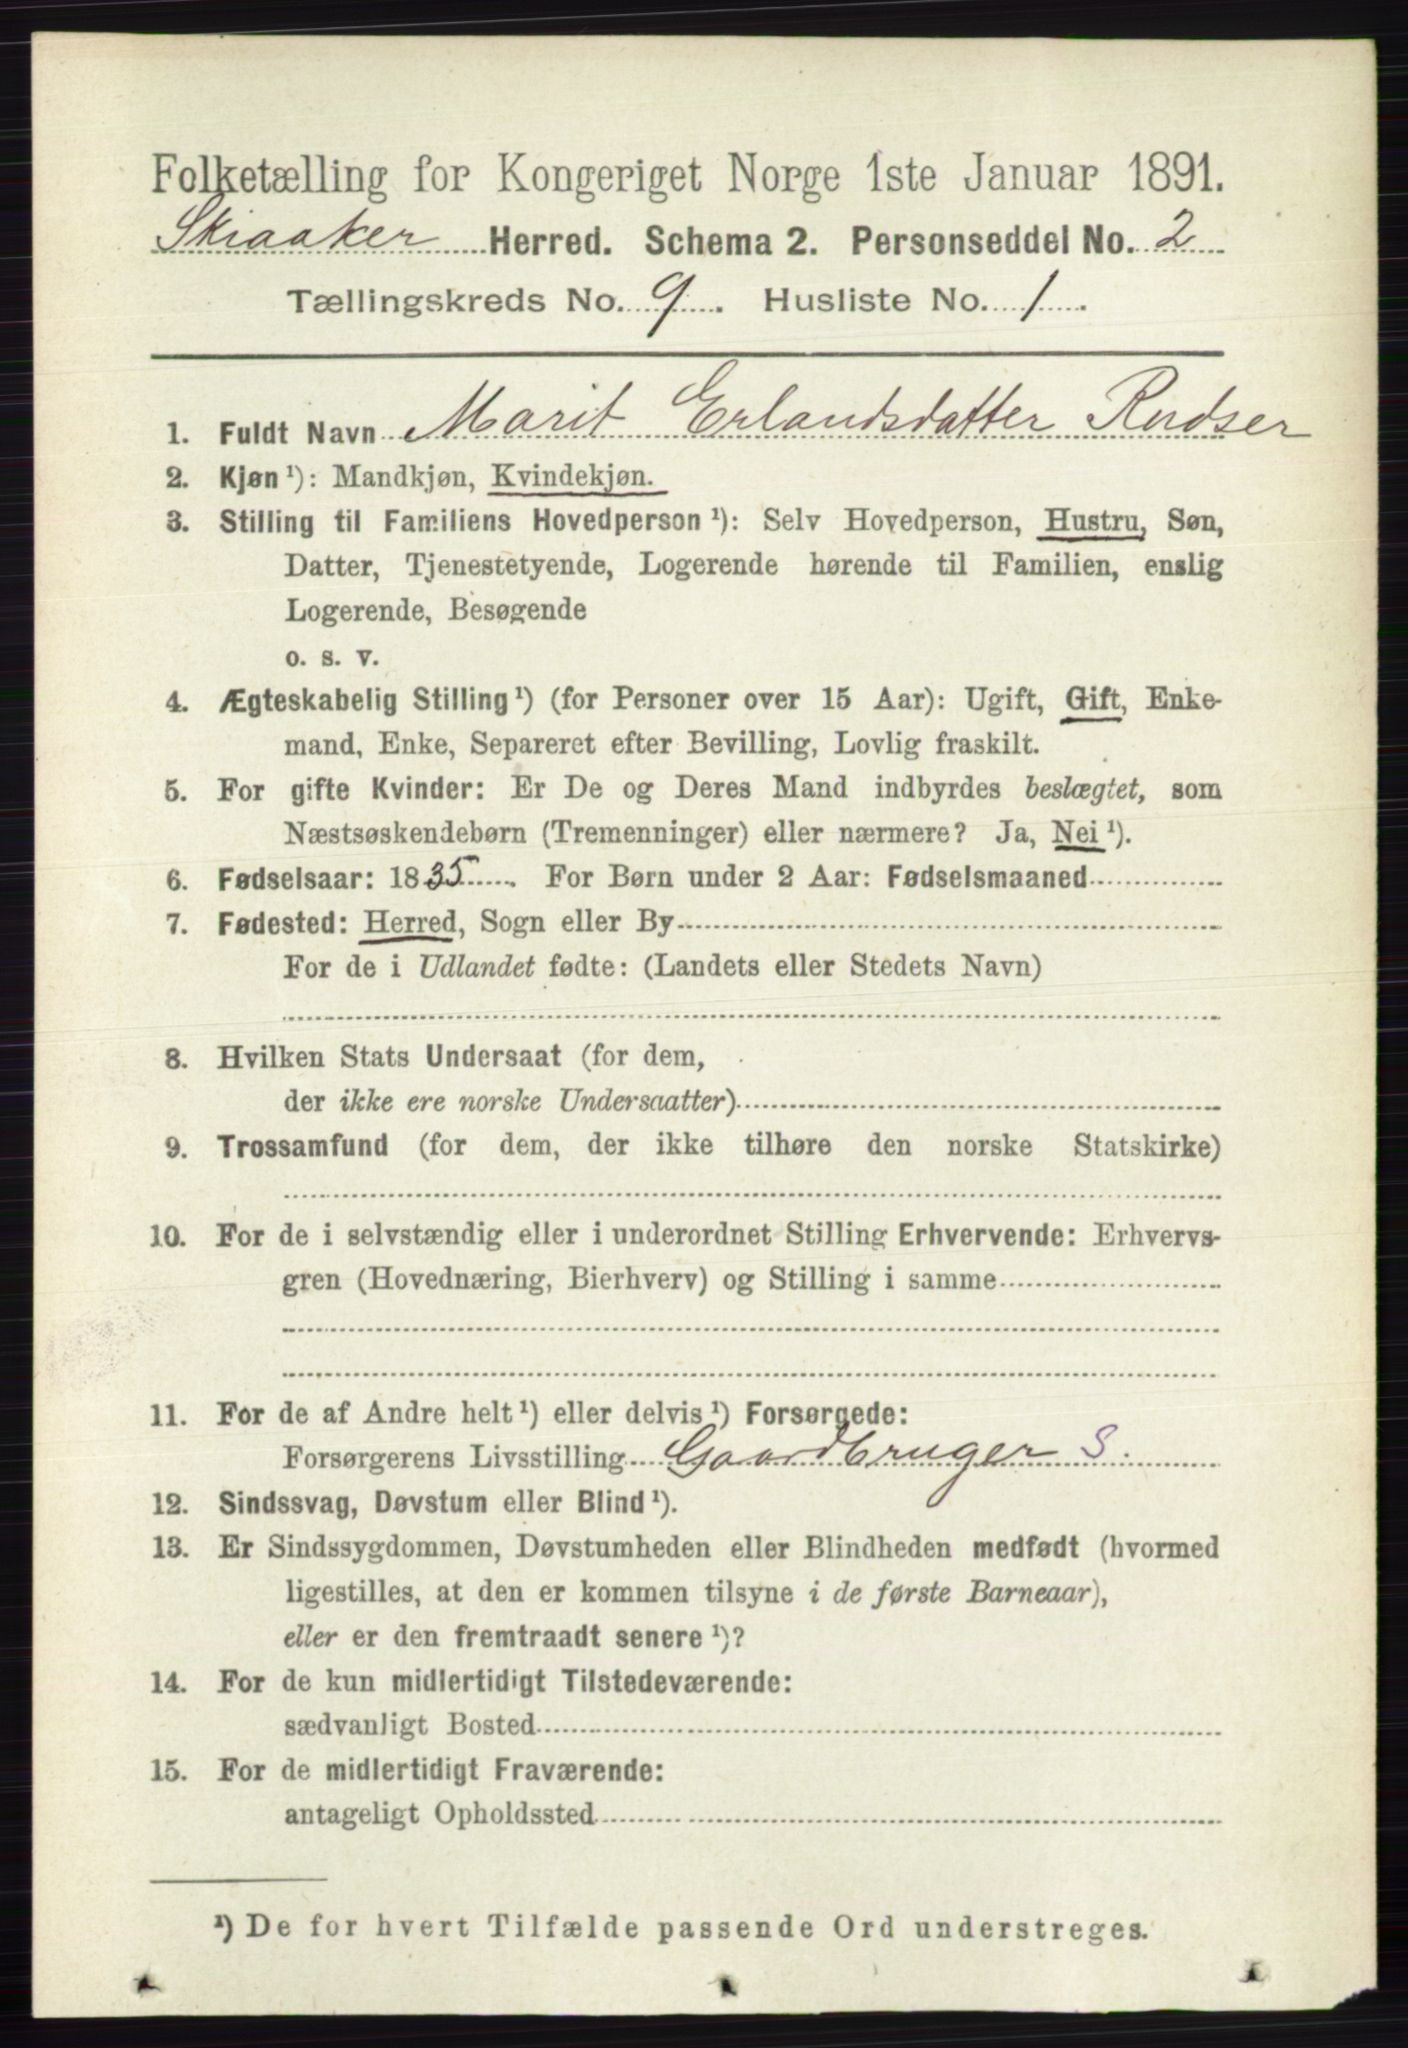 Folketælling for Kongeriget Norge 1ste Januar 1891.
Skiaaker Herred. Schema 2. Personseddel No. 2
Tællingskreds No. 9. Husliste No. 1.
1. Fuldt Navn Marit Erlandsdatter Rudser
2. Kjøn ¹): Mandkjøn, Kvindekjøn.
3. Stilling til Familiens Hovedperson ¹): Selv Hovedperson, Hustru, Søn,
Datter, Tjenestetyende, Logerende hørende til Familien, enslig
Logerende, Besøgende
o. s. v.
4. Ægteskabelig Stilling ¹) (for Personer over 15 Aar): Ugift, Gift, Enke-
mand, Enke, Separeret efter Bevilling, Lovlig fraskilt.
5. For gifte Kvinder: Er De og Deres Mand indbyrdes beslægtet, som
Næstsøskendebørn (Tremenninger) eller nærmere? Ja, Nei ¹).
6. Fødselsaar: 1835. For Børn under 2 Aar: Fødselsmaaned
7. Fødested: Herred, Sogn eller By
For de i Udlandet fødte: (Landets eller Stedets Navn)
8. Hvilken Stats Undersaat (for dem,
der ikke ere norske Undersaatter)
9. Trossamfund (for dem, der ikke tilhøre den norske Statskirke)
10. For de i selvstændig eller i underordnet Stilling Erhvervende: Erhvervs-
gren (Hovednæring, Bierhverv) og Stilling i samme
11. For de af Andre helt ¹) eller delvis ¹) Forsørgede:
Forsørgerens Livsstilling Gaardbruger S.
12. Sindssvag, Døvstum eller Blind ¹).
13. Er Sindssygdommen, Døvstumheden eller Blindheden medfødt (hvormed
ligestilles, at den er kommen tilsyne i de første Barneaar),
eller er den fremtraadt senere ¹)?
14. For de kun midlertidigt Tilstedeværende:
sædvanligt Bosted
15. For de midlertidigt Fraværende:
antageligt Opholdssted
¹) De for hvert Tilfælde passende Ord understreges.